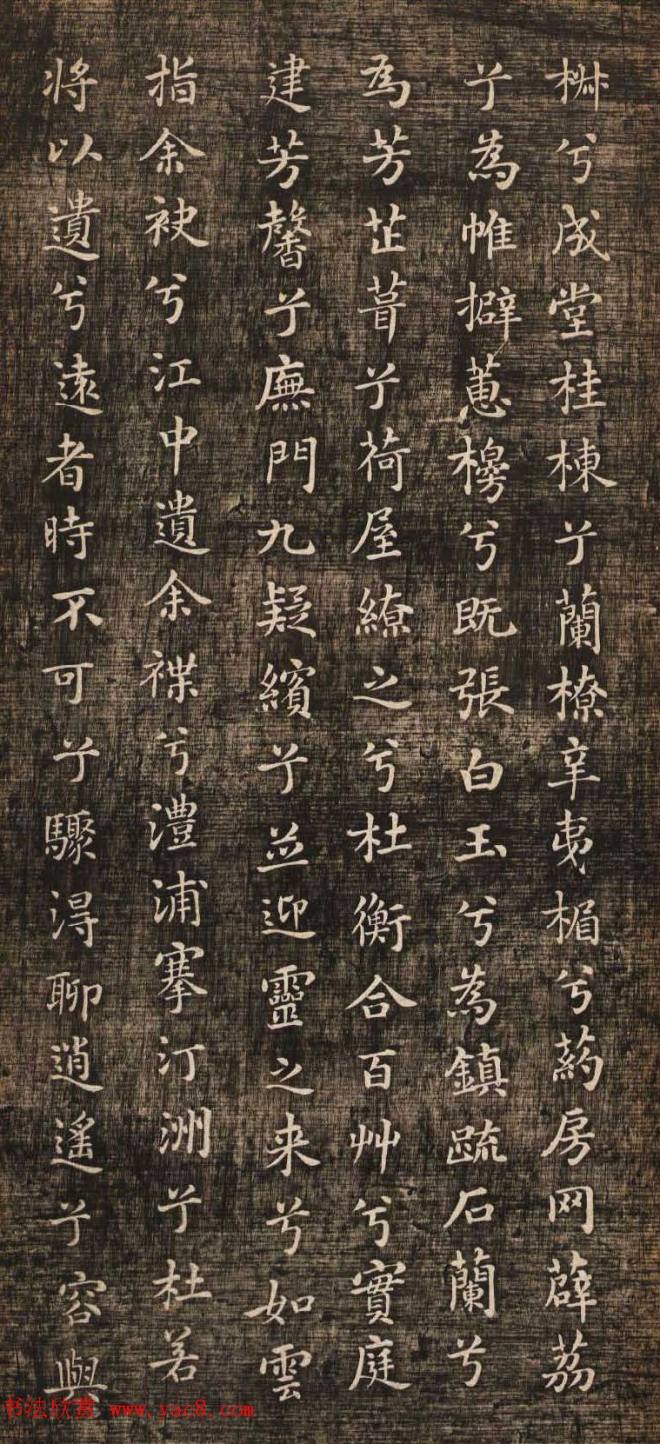 椒兮成堂桂棟兮蘭橑辛夷楣兮葯房网薜荔
兮為帷擗蕙櫋兮既張白玉兮為鎮疏石蘭兮
為芳芷葺兮荷屋繚之兮杜衡合百艸兮實庭
建芳馨兮廡門九疑繽兮並迎靈之来兮如雲
指余袂兮江中遺余褋兮澧浦搴汀洲兮杜若
将以遺兮遠者時不可兮驟淂聊逍遙兮容與
书法欣赏 www.yac8.com